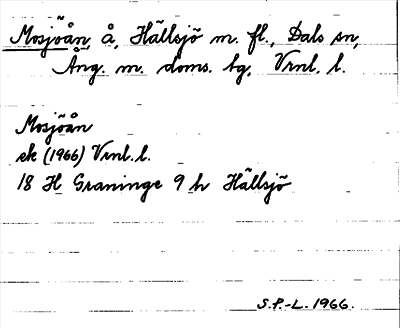 Mosjöån, å, Hällsjö m. fl., Dals sn,
Ång. m. doms. bg, Vrnl. l.
Mosjöån
ek (1966) Vrnl. l.
18 H Graninge 9 h Hällsjö
S.P.-L. 1966.